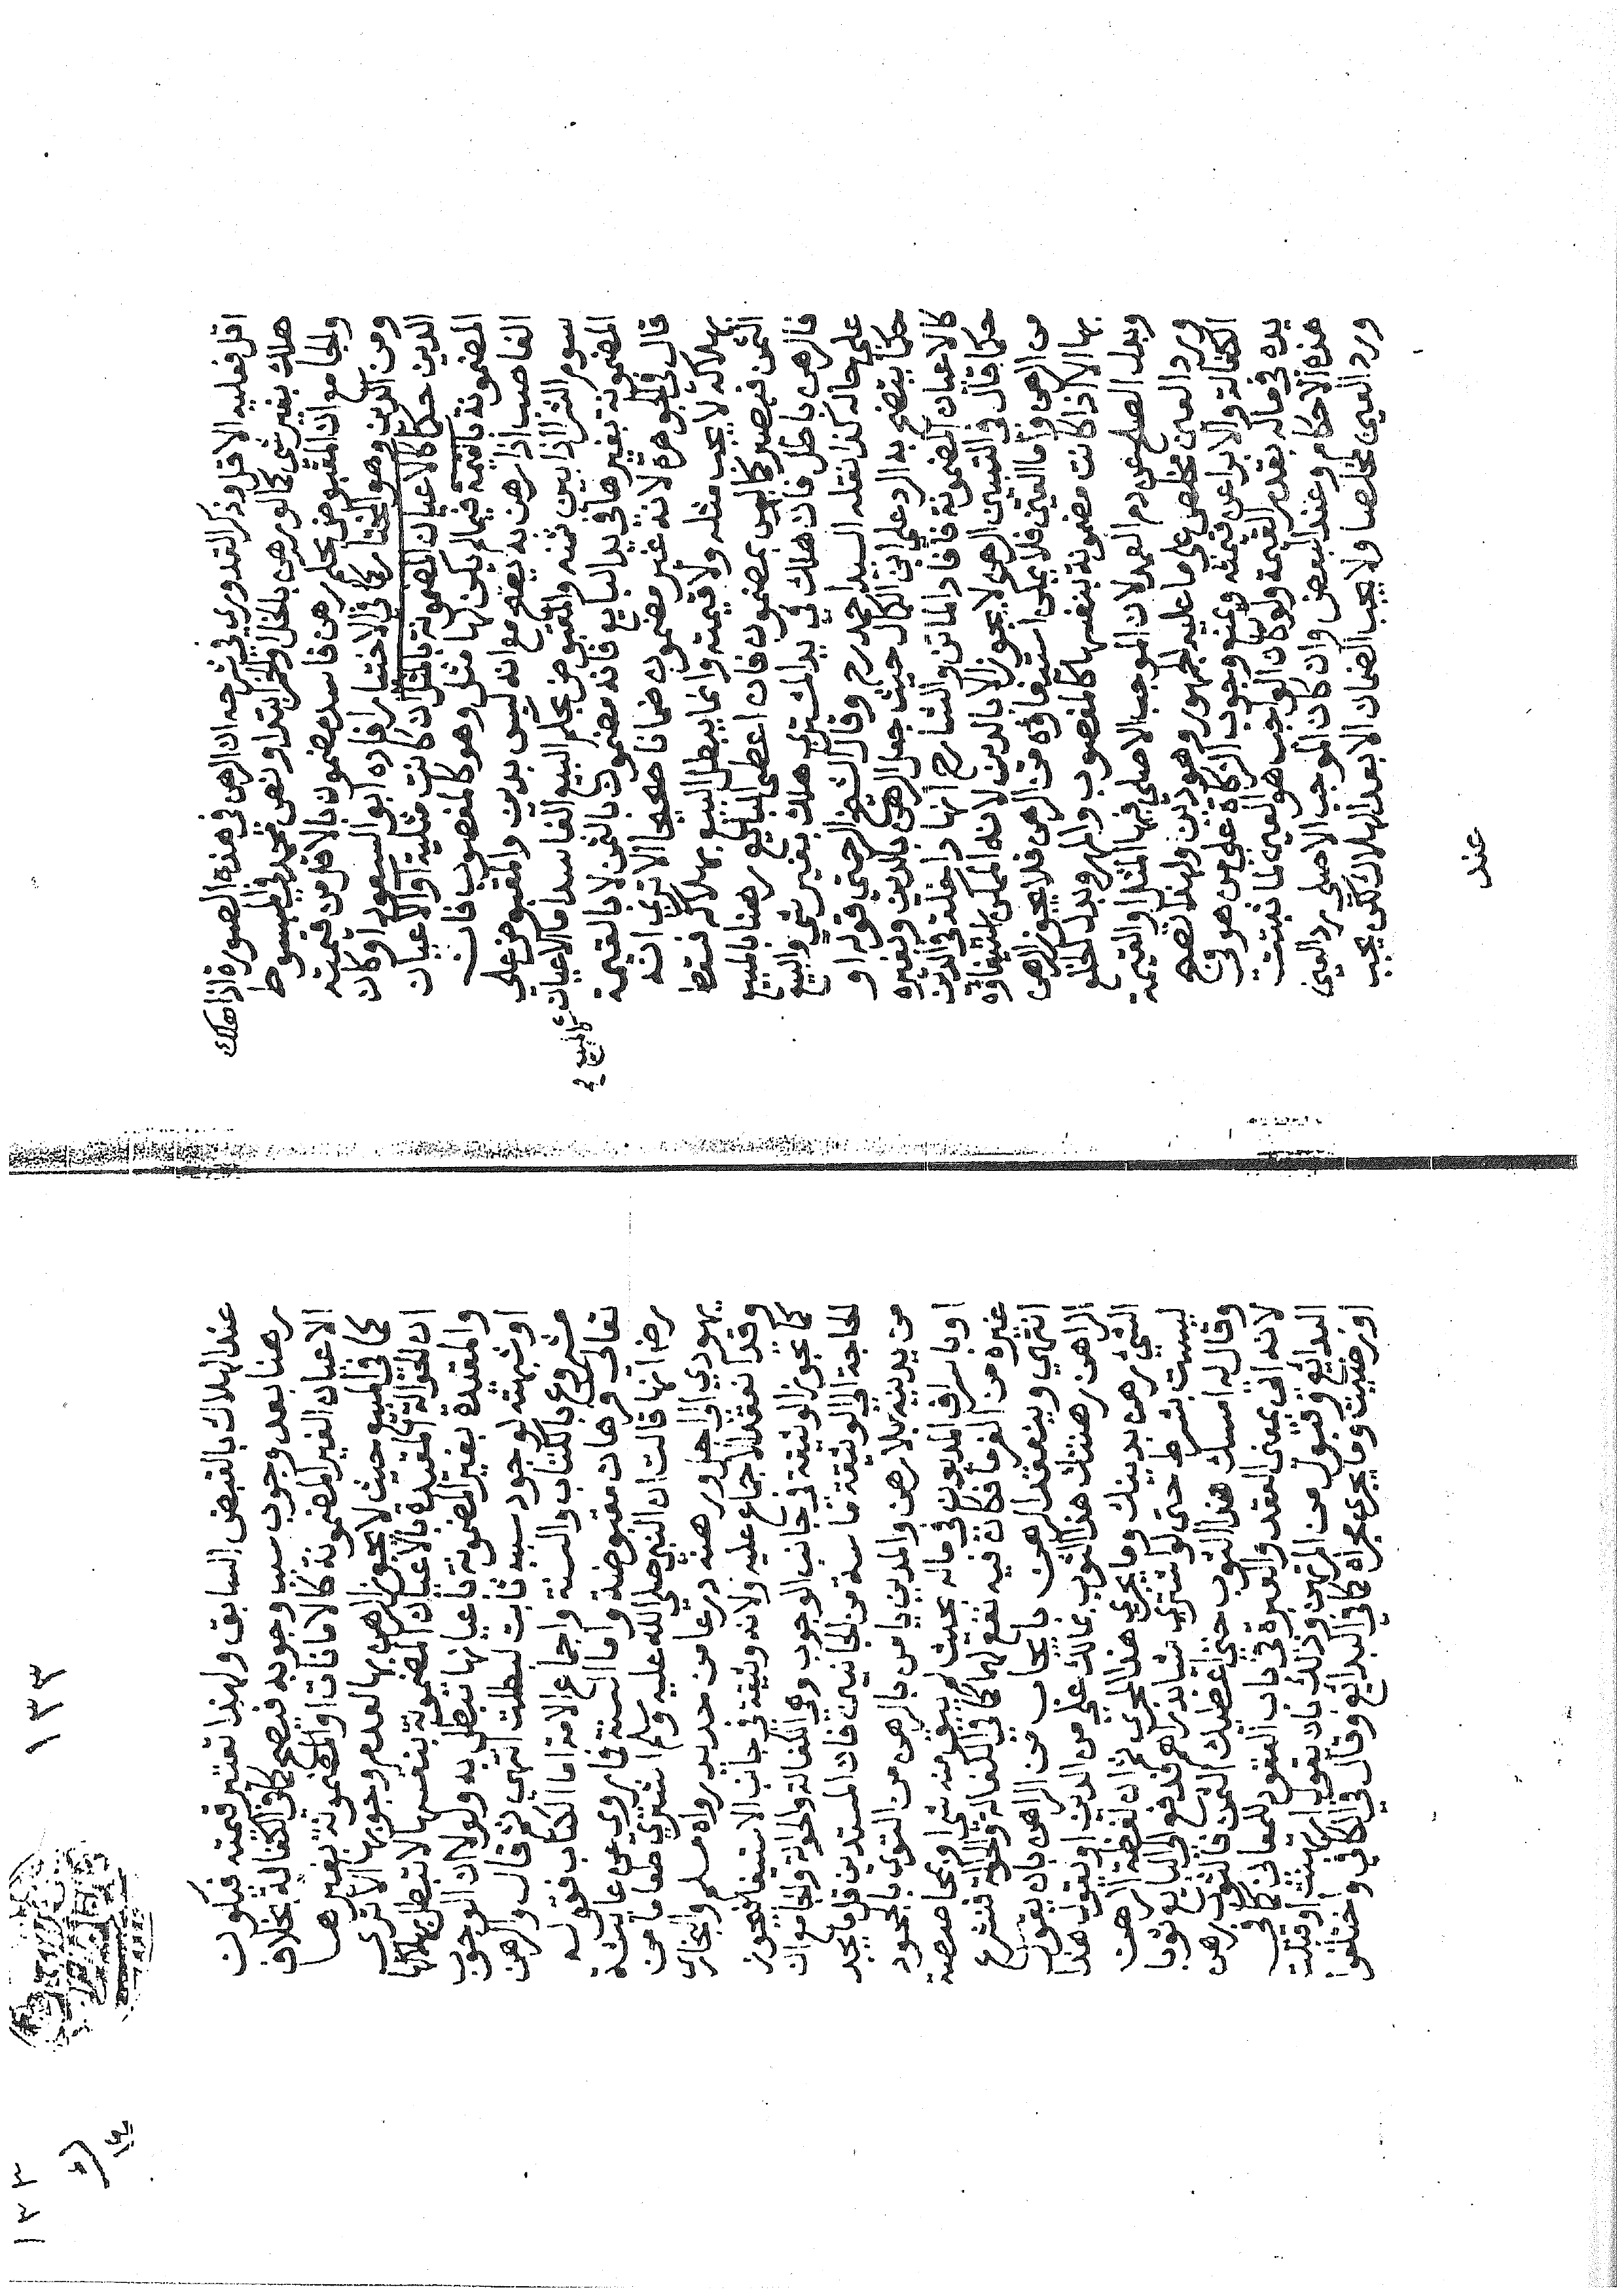 اقل فعليه الاقل وذكر القدوري في شرحه ان الرهن في هذه الصورة اذا هلك
هلك بغير شي كما لو رهن بالخل والخمر ابتدا ونص محمد في المبسوط
والجامع ان المقبوض بحكم رهن فاسد مضمون بالاقل من قيمته
ومن الدين وهو المختار كما في الاختيار افاده ابو السعود او كان
الدين حكما كالاعيان المضمونة بالمثل ان كانت مثلية او الاعيان
المضمونة بالقيمة فيما لم يكن لها مثل وهو كالمغصوب فان
الغاصب اذا رهن به يصح مع انه ليس بدين والمقبوض علي
سوم الشرا اذا بين ثمنه والمقبوض بحكم البيع الفاسد اما الاعيان
المضمونة بغيرها كالمبيع في يد البايع فانه مضمون بالثمن لا بالقيمة
قال في الجوهرة لانه غير مضمون ضمانا صحيحا الا تري انه
بهلاكه لا يجب مثله ولا قيمته وانما يبطل البيع بهلاكه فسقط
الثمن فيصير كما ليس بمضمون فان اعطي البايع رهنا بالمبيع
فالرهن باطل فان هلك في يد المشتري هلك بغير شي والبيع
علي حاله كذا نقله السيد احمد رح وقال الشيخ الرحمتي قوله او
حكما يتضح به الرد علي ابن الكمال حيث جعل الرهن بالدين وبغيره
كالاعيان المضمونة فافاد الماتن والشارح انها داخلة في الدين
حكما قال في التبيين الرهن لا يجوز الا بالدين لانه الممكن استيفاؤه
من الرهن واما العين فلا يمكن استيفاؤه من الرهن فلا يجوز الرهن
بها الا اذا كانت مضمونة بنفسها كالمغصوب والمهر وبدل الخلع
وبدل الصلح عن دم العمد لان الموجب الاصلي فيها المثل او القيمة
ورد العين مخلص علي ما عليه الجمهور وهو دين ولهذا تصح
الكفالة والابراء عن قيمته ويمنع وجوب الزكاة علي من هو في
يده في ماله بقدر القيمة ولو كان الواجب هو العين لما ثبتت
هذه الاحكام وعند البعض وان كان الموجب الاصلي رد العين
ورد القيمة مخلصا ولا يجب الضمان الا بعد الهلاك لكن يجب
عند
١٣٣
١٣٣
عند الهلاك بالقبض السابق ولهذا تعتبر قيمته فيكون
رهنا بعد وجوب سبب وجوبه فيصح كما في الكفالة بخلاف
الاعيان الغير المضمونة كالامانات او المضمونة بغيرها
كما في المبيع حيث لا يجوز الرهن بها لعدم وجوبها الا تري
ان الحوالة المقيدة بالاعيان المضمونة بنفسها لا تبطل بهلاكها
والمقيدة بغير المضمونة باعيانها تبطل به ولولا ان الوجوب
او شبهته لوجود سببه ثابت لبطلت انتهي ثم قال والرهن
مشروع بالكتاب والسنة واجماع الامة اما الكتاب فقوله
تعالي فرهان مقبوضة واما السنة فما روي عن عايشة
رض انها قالت ان النبي صلي الله عليه وسلم اشتري طعاما من
يهودي الي اجل ورهنه درعا من حديد رواه مسلم والبخاري
وقد انعقد الاجماع عليه ولانه وثيقة في جانب الاستيفا فيجوز
كما يجوز الوثيقة في جانب الوجوب وهي الكفالة والحوالة والجامع ان
الحاجة الي الوثيقة ماسة من الجانبين فان المستدين قل ما يجد
من يدينه بلا رهن والمدين يامن بالرهن من التوي بالجحود
او باسراف المديون في ماله بحيث لم يبق منه شي او بمحاصصة
غيره من الغرما فكان فيه نفع لهما كما في الكفالة والحوالة فشرع
انتهي وينعقد الرهن بايجاب من الراهن بان يقول
الراهن رهنتك هذا الثوب بمالك علي من الدين او يقول هذا
الشي رهن بدينك وما يجري هذا المجري ثم ان لفظة الرهن
ليست بشرط حتي لو اشتري شيا بدراهم فدفع الي البايع ثوبا
وقال له امسك هذا الثوب حتي اعطيك الثمن فالثوب رهن
لانه اتي بمعني العقد والعبرة في باب العقود للمعاني كما في
البدائع وقبول من المرتهن وذلك بان يقول ارتهنت او قبلت
او رضيت وما يجري مجراه كما في البدائع وقال في الكافي واختلفوا